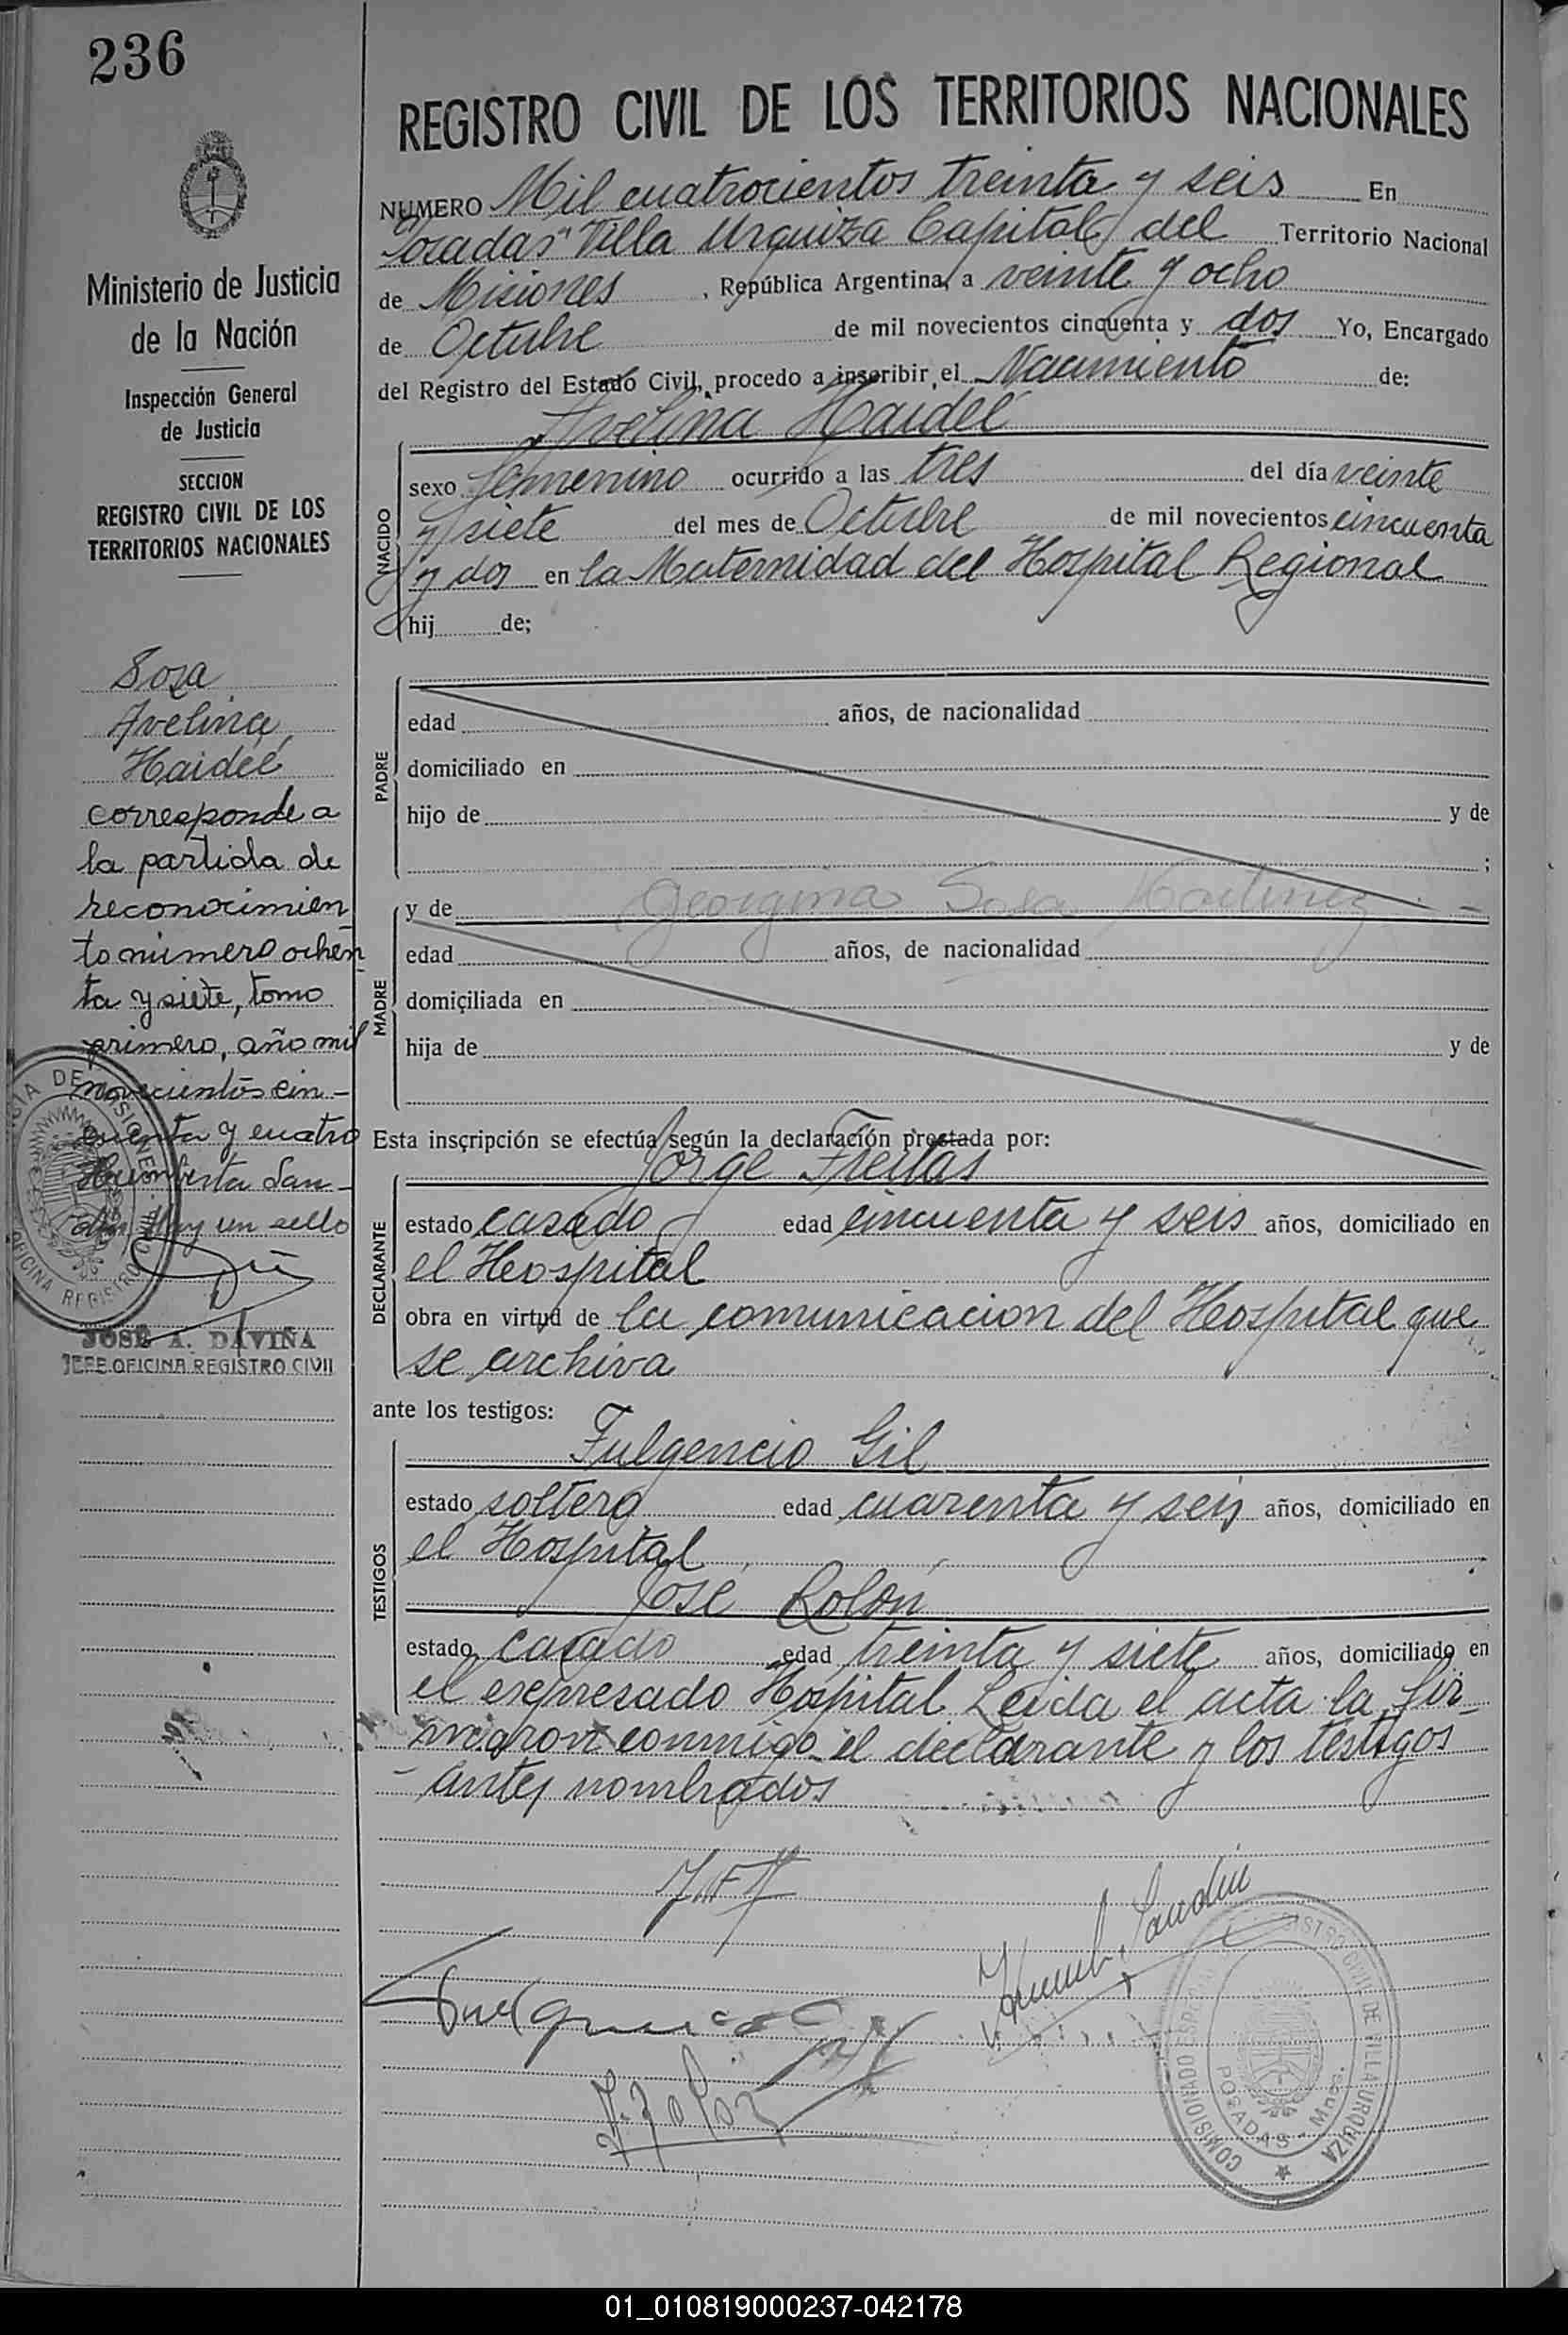 236
Ministerio de Justicia
de la Nación
Inspección General
de Justicia
SECCION
REGISTRO CIVIL DE LOS
TERRITORIOS NACIONALES
Sosa
Avelina
Haideé
corresponde a
la partida de
reconocimien
to número ochen
ta y siete, tomo
primero, año mil
novecientos cin-
cuenta y cuatro
Humberta San-
hay un sello
JOSÉ A. DAVIÑA
JEFE OFICINA REGISTRO CIVIL
OFICINA REGISTRO
REGISTRO CIVIL DE LOS TERRITORIOS NACIONALES
NUMERO Mil cuatrocientos treinta y seis En
Posadas Villa Urquiza Capital del Territorio Nacional
de Misiones , República Argentina, a veinte y ocho
de Octubre de mil novecientos cincuenta y dos Yo, Encargado
del Registro del Estado Civil, procedo a inscribir el Nacimiento de:
Avelina Haideé
NACIDO
sexo femenino ocurrido a las tres del día veinte
y siete del mes de Octubre de mil novecientos cincuenta
y dos en la Maternidad del Hospital Regional
hij de;
PADRE
edad años, de nacionalidad
domiciliado en
hijo de y de
;
MADRE
y de Georgina Sosa Martinez
edad años, de nacionalidad
domiciliada en
hija de y de
Esta inscripción se efectúa según la declaración prestada por:
Jorge Freitas
DECLARANTE
estado casado edad cincuenta y seis años, domiciliado en
el Hospital
obra en virtud de la comunicacion del Hospital que
se archiva
ante los testigos:
TESTIGOS
Fulgencio Gil
estado soltero edad cuarenta y seis años, domiciliado en
el Hospital
José Rolón
estado casado edad treinta y siete años, domiciliado en
el expresado Hospital Leida el acta la fir-
maron conmigo el declarante y los testigos
antes nombrados
Humb. Sandin
COMISIONADO ESPECIAL REGISTRO CIVIL DE VILLA URQUIZA
POSADAS - Mnes.
01_010819000237-042178